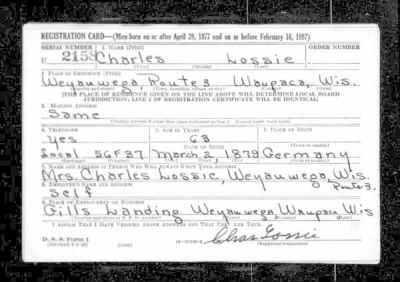 REGISTRATION CARD—(Men born on or after April 28, 1877 and on or before February 16, 1897)
SERIAL NUMBER 1. NAME (Print) ORDER NUMBER
U 2158 Charles Lossie
2. PLACE OF RESIDENCE (Print)
Weyauwega, Route 3 Waupaca, Wis.
[THE PLACE OF RESIDENCE GIVEN ON THE LINE ABOVE WILL DETERMINE LOCAL BOARD
JURISDICTION; LINE 2 OF REGISTRATION CERTIFICATE WILL BE IDENTICAL]
3. MAILING ADDRESS
Same
4. TELEPHONE 5. AGE IN YEARS 6. PLACE OF BIRTH
Yes 63
DATE OF BIRTH
Local 56F37 March 2, 1879 Germany
7. NAME AND ADDRESS OF PERSON WHO WILL ALWAYS KNOW YOUR ADDRESS
Mrs. Charles Lossie, Weyauwega, Wis.
8. EMPLOYER'S NAME AND ADDRESS Route 3.
Self
9. PLACE OF EMPLOYMENT OR BUSINESS
Gills Landing Weyauwega Waupaca Wis
I AFFIRM THAT I HAVE VERIFIED ABOVE ANSWERS AND THAT THEY ARE TRUE.
D. S. S. Form 1
Chas Lossie
(Registrant's signature)